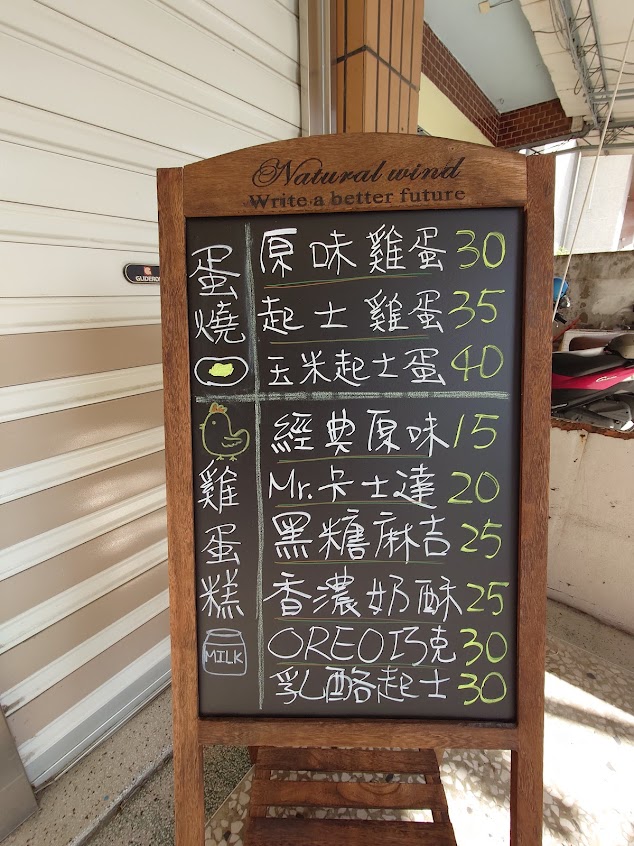 Natural wind
Write a better future
蛋燒
原味雞蛋 30
起士雞蛋 35
玉米起士蛋 40
雞蛋糕
經典原味 15
Mr.卡士達 20
黑糖麻吉 25
香濃奶酥 25
OREO巧克 30
乳酪起士 30
MILK
GLIDEROL